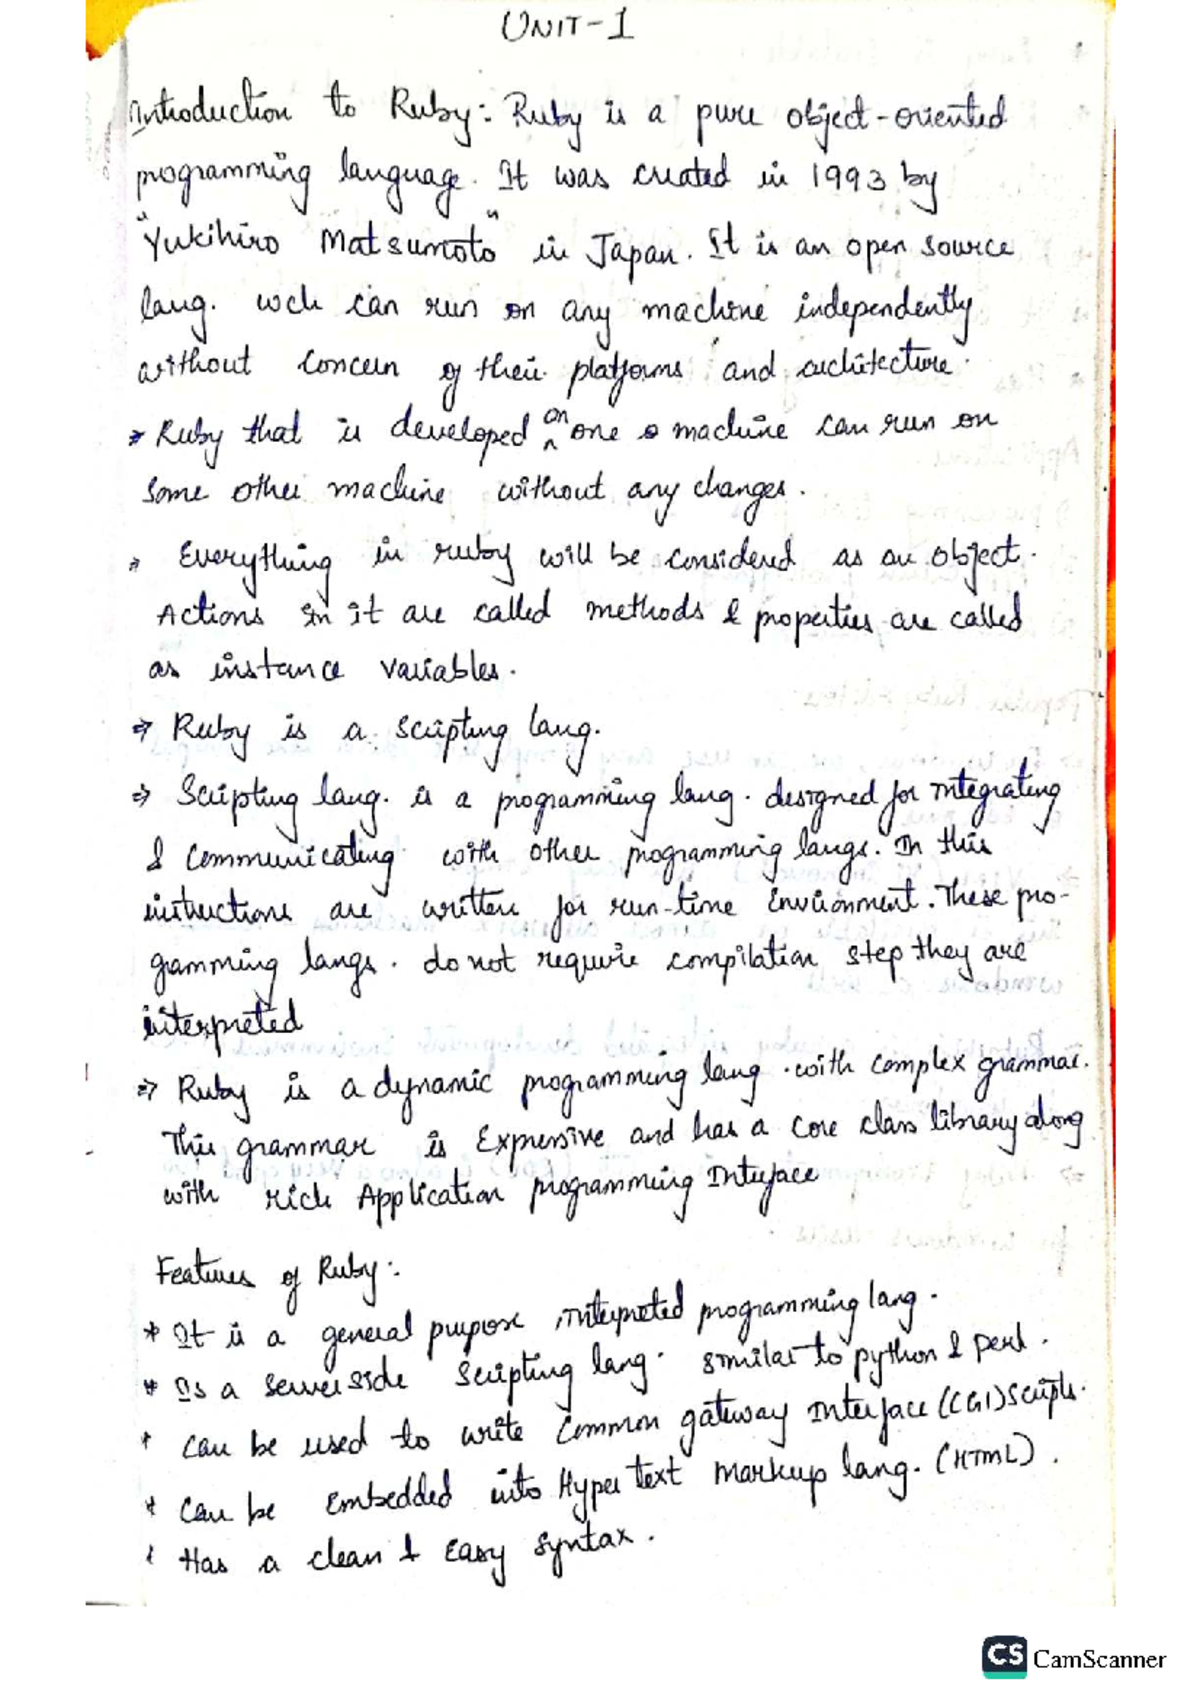 UNIT-1
Introduction to Ruby: Ruby is a pure object-oriented
programming language. It was created in 1993 by
"Yukihiro Matsumoto" in Japan. It is an open source
lang. wch can run on any machine independently
without concern of their platforms and architecture.
⇒ Ruby that is developed on one machine can run on
some other machine without any changes.
⇒ Everything in ruby will be considered as an object.
Actions in it are called methods & properties are called
as instance variables.
⇒ Ruby is a scripting lang.
⇒ Scripting lang. is a programming lang. designed for integrating
& communicating with other programming langs. In this
instructions are written for run-time Environment. These pro-
gramming langs. do not require compilation step they are
interpreted
⇒ Ruby is a dynamic programming lang. with complex grammar.
This grammar is Expensive and has a core class library along
with rich Application programming Interface
Features of Ruby:
* It is a general purpose interpreted programming lang.
* Is a server side scripting lang. similar to python & perl.
* can be used to write Common gateway Interface (CGI) scripts.
* Can be Embedded into Hyper Text Markup lang. (HTML).
* Has a clean & Easy Syntax.
CS CamScanner